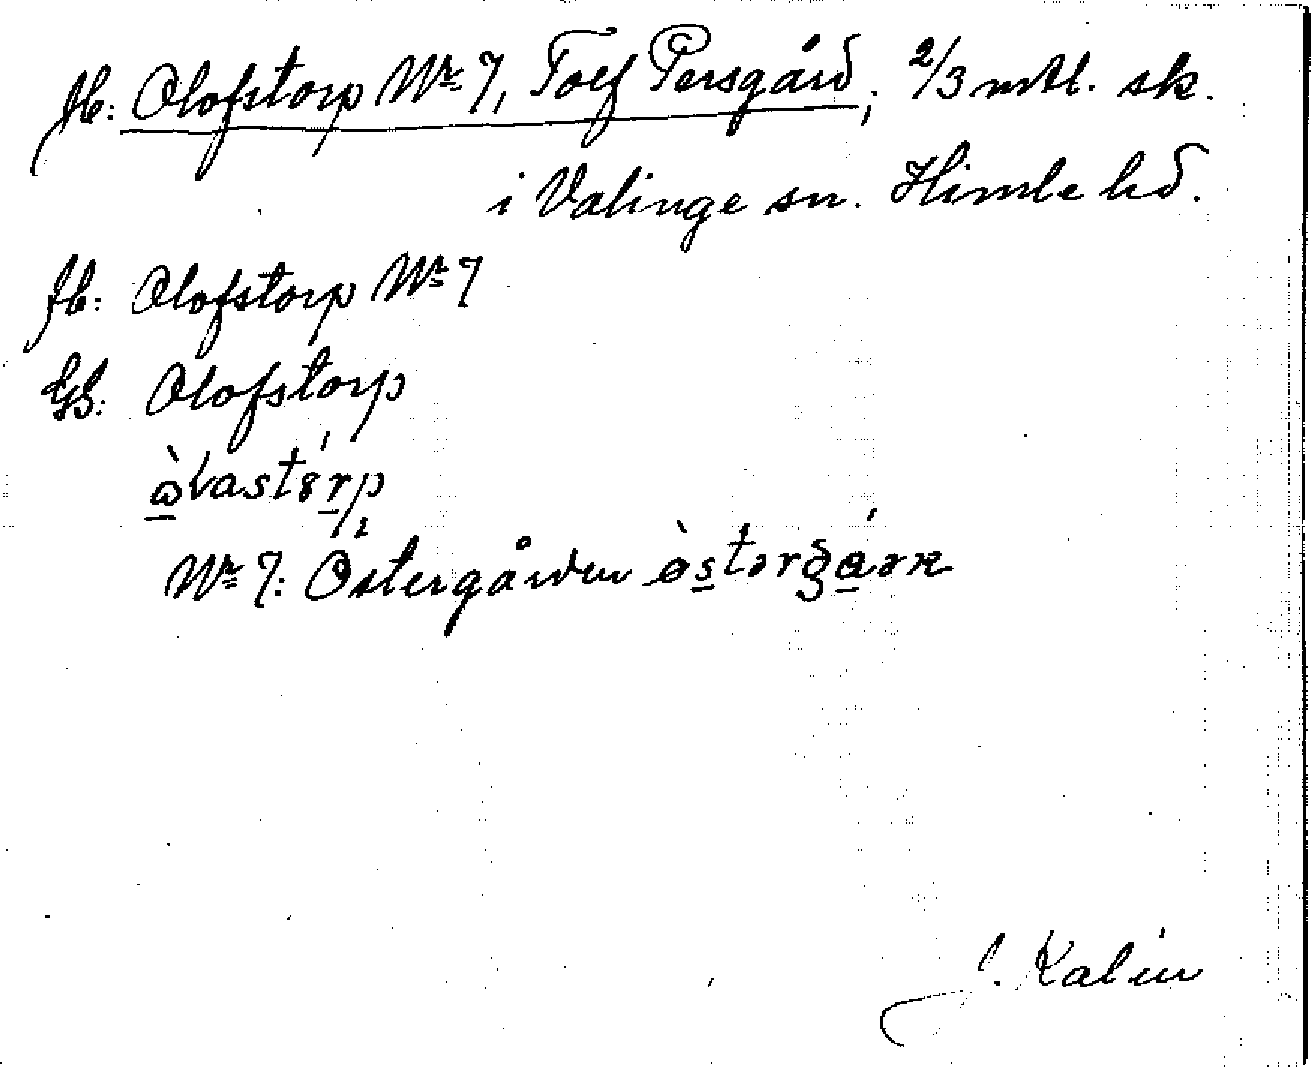 Jb: Olofstorp Nr 7, Tolf Persgård; 2/3 mtl. sk.
i Valinge sn. Himle hd.
Jb: Olofstorp Nr 7
GS: Olofstorp
Nr 7: Östergården
J. Kalén